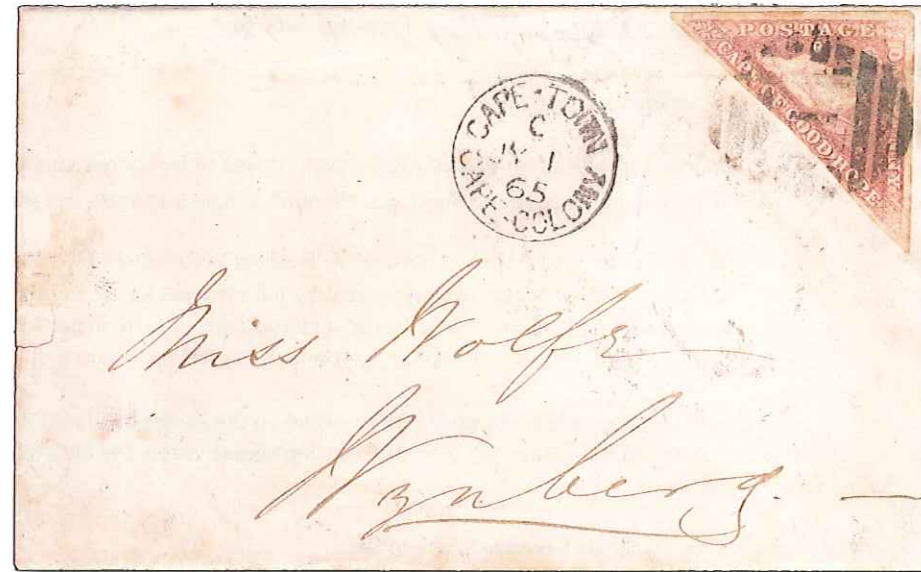 POSTAGE
CAPE OF GOOD HOPE
CAPE·TOWN
C
1
65
CAPE-COLONY
Miss Wolfe
Wynberg.